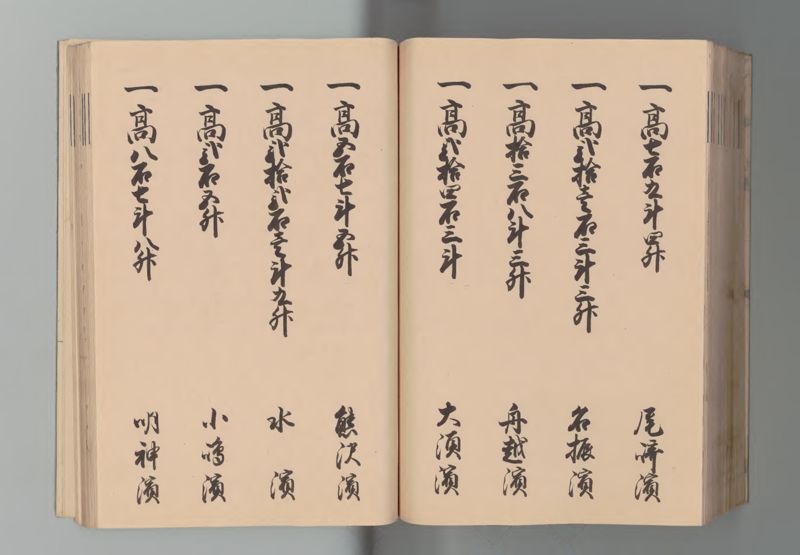 一高七石九斗四升
尾崎濱
一高弐拾壱石三斗三升
名振濱
一高拾三石八斗三升
舟越濱
一高弐拾四石三斗
大須濱
一高五石七斗五升
熊沢濱
一高弐拾弐石壱斗九升
水濱
一高弐石五升
小嶋濱
一高八石七斗八升
明神濱